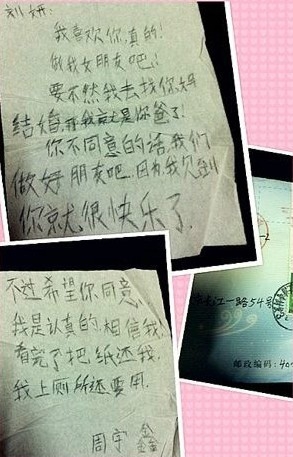 刘妍:
我喜欢你真的!
做我女朋友吧!
要不然我去找你妈
结婚,那我就是你爸了!
你不同意的话,我们
做好朋友吧.因为我见到
你就很快乐了.
不过希望你同意,
我是认真的.相信我!
看完了把纸还我.
我上厕所还要用.
周宇鑫
江一路54号
邮政编码:40